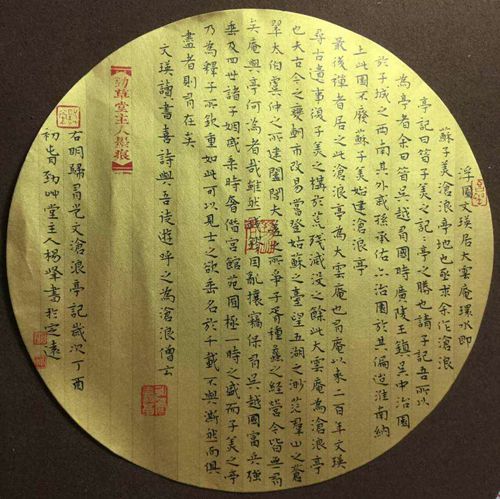 浮圖文瑛居大雲庵環水即
蘇子美滄浪亭地也亟求余作滄浪
亭記曰昔子美之記〻亭之勝也請子記吾所以
為亭者余曰昔吳越有國時廣陵王鎮吳中治園
於子城之西南其外戚孫承佑亦治園於其偏迨淮南納
土此園不廢蘇子美始建滄浪亭
最後禪者居之此滄浪亭為大雲庵也有庵以來二百年文瑛
尋古遺事復子美之構於荒殘滅沒之餘此大雲庵為滄浪亭
也夫古今之變朝市改易嘗登姑蘇之臺望五湖之渺茫群山之蒼
翠太伯虞仲之所建闔閭夫差之所爭子胥種蠡之經營今皆無有
矣庵與亭何為者哉雖然錢鏐因亂攘竊保有吳越國富兵強
垂及四世諸子姻戚乘時奢僭宮館苑囿極一時之盛而子美之亭
乃為釋子所欽重如此可以見士之欲垂名於千載不與澌然而俱
盡者則有在矣
文瑛讀書喜詩與吾徒遊呼之為滄浪僧云
勁草堂主人墨痕
右明歸有光文滄浪亭記歲次丁酉
初 勁艸堂主人楊峰書於定遠